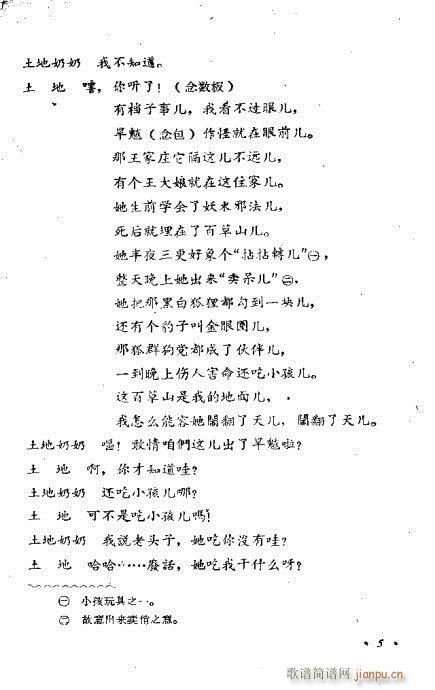 土地奶奶 我不知道。
土 地 嘻，你听了！(念数板)
有档子事儿，我看不过眼儿，
旱魃(念包)作怪就在眼前儿。
那王家庄它隔这儿不远儿，
有个王大娘就在这住家儿。
她生前学会了妖术邪法儿，
死后就埋在了百草山儿。
她半夜三更好象个“拈拈轉儿”㊀，
整天晚上她出来“卖呆儿”㊁，
她把那黑白狐狸都勾到一块儿，
还有个豹子叫金眼圈儿，
那狐群狗党都成了伙伴儿，
一到晚上伤人害命还吃小孩儿。
这百草山是我的地面儿，
我怎么能容她閙翻了天儿，閙翻了天儿。
土地奶奶 嗯！敢情咱們这儿出了旱魃啦？
土 地 啊，你才知道哇？
土地奶奶 还吃小孩儿哪？
土 地 可不是吃小孩儿嗎！
土地奶奶 我說老头子，她吃你沒有哇？
土 地 哈哈……廢話，她吃我干什么呀？
㊀ 小孩玩具之一。
㊁ 故意出来卖俏之意。
• 5 •
歌谱简谱网
jianpu.cn